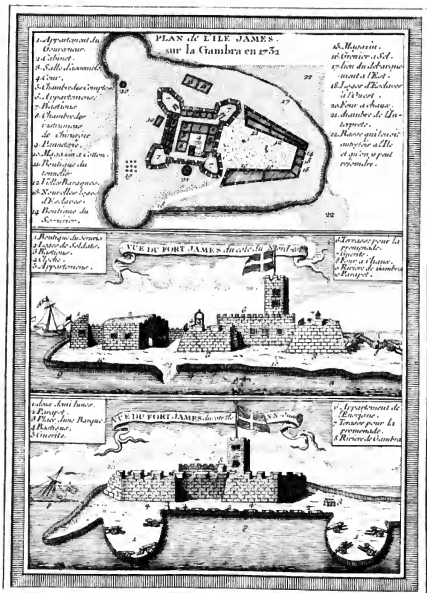 PLAN de L'ILE JAMES.
sur la Gambra en 1732
1. Appartement du
Gouverneur.
2. Cabinet.
3. Salle d'assemblée
4. Cour.
5. Chambre des Comptes
6. Appartemens.
7. Bastions
8. Chambre des
instrumens
de Chirurgie
9. Panneterie.
10. Magazin à Cotton.
11. Boutique du
tonnelier
12. Vieilles Baraques.
13. Nouvelles loges
d'Esclaves.
14. Boutique du
Serrurier.
15. Magazin.
16. Grenier à Sel.
17. lieu du débarque-
ment à l'Est.
18. Loges d'Esclaves
à l'Ouest.
20. Four à chaux.
21. chambre de l'In-
terprete.
22. Basse qui tenoit
autrefois à l'Ile
et qu'on y peut
rejoindre.
VUE DU FORT JAMES du coté du Nord
1. Boutique du Serrurier
2. Loges de Soldats.
3. Bastions.
4. Cloche.
5. Appartemens.
6. Terasses pour la
promenade.
7. Guerite.
8. Four à Chaux.
9. Riviere de Gambra
10. Parapet.
VUE DU FORT JAMES du coté
1. deux demi lunes.
2. Parapet.
3. Place d'une Barque
4. Bastions.
5. Guerite.
6. Appartement de
l'Enseigne.
7. Terasses pour la
promenade.
8. Riviere de Gambra